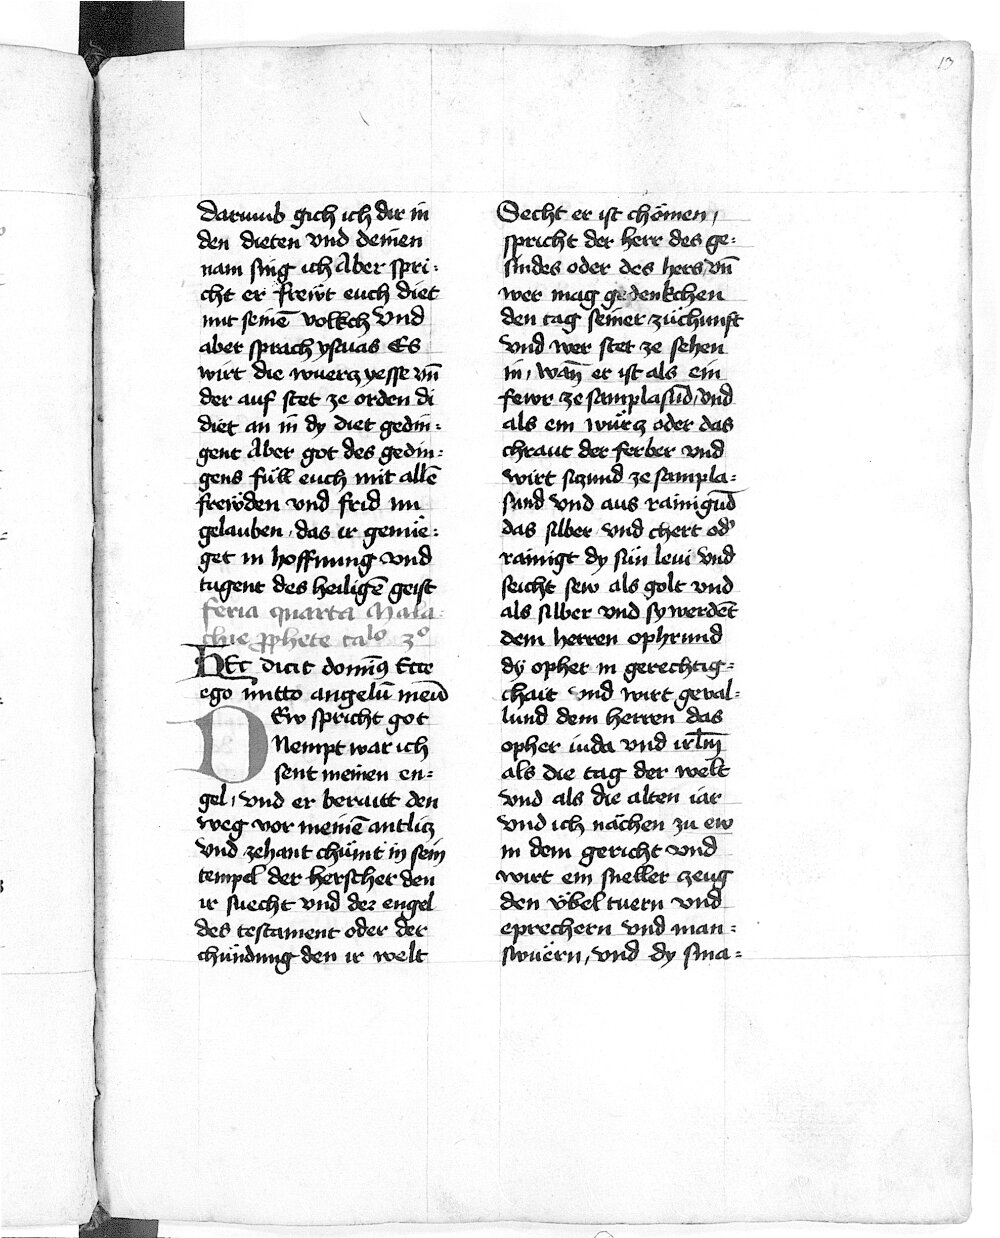 13
darumb gich ich dir in
den dieten vnd deinen
nam sing ich Aber spri-
cht er frewt euch diet
mit seinē volkch Vnd
aber sprach ysaias Es
wirt die wuercz yesse vn̄
der auf stet ze orden di
diet an in dy diet gedin-
gent Aber got des gedin-
gens füll euch mit allē
frewden vnd frid im
gelauben, das ir genüe-
get in hoffnung vnd
tugent des heiligē geist
feria quarta Mala-
chie ꝓphete caᵒ 3ᵒ
HEc dicit domin⁹ Ecce
ego mitto angelū meū
DEw spricht got
Nempt war ich
sent meinen en-
gel, vnd er beraitt den
weg vor meinē antlicz
vnd zehant chümt in sein
tempel der herscher den
ir suecht vnd der engel
des testament oder der
chündung den ir welt
Secht er ist chömen,
spricht der herr des ge-
sindes oder des hers, vn̄
wer mag gedenkchen
den tag seiner züchunft
vnd wer stet ze sehen
in, wan̄ er ist als ein
fewr ze samplasūd, vnd
als ein würcz oder das
chraut der ferber vnd
wirt siczund ze sampla-
sund vnd aus rainigūd
das silber vnd chert od'
rainigt dy sün leui vnd
seicht sew als golt vnd
als silber vnd sy werdēt
dem herren ophrund
dy opher in gerechtig-
chait vnd wirt geual-
lund dem herren das
opher iuda vnd irlm̄
als die tag der welt
vnd als die alten iar
vnd ich nächen zu ew
in dem gericht vnd
wirt ein sneller czeug
den vbel tuern vnd
eprechern vnd man-
swuern, vnd dy sma-